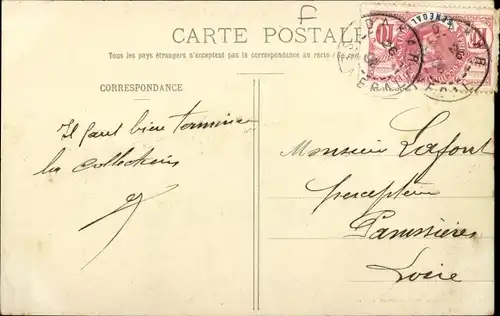 F
CARTE POSTALE
Tous les pays étrangers n'acceptent pas la correspondance au recto
CORRESPONDANCE
Il faut bien terminer
les collections
Monsieur Lafont
percepteur
Panissières
Loire
10
SÉNÉGAL
10
DAKAR
DAKAR